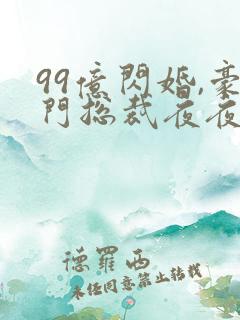 99億閃婚,豪
門總裁夜夜
德羅西
未經同意禁止轉載